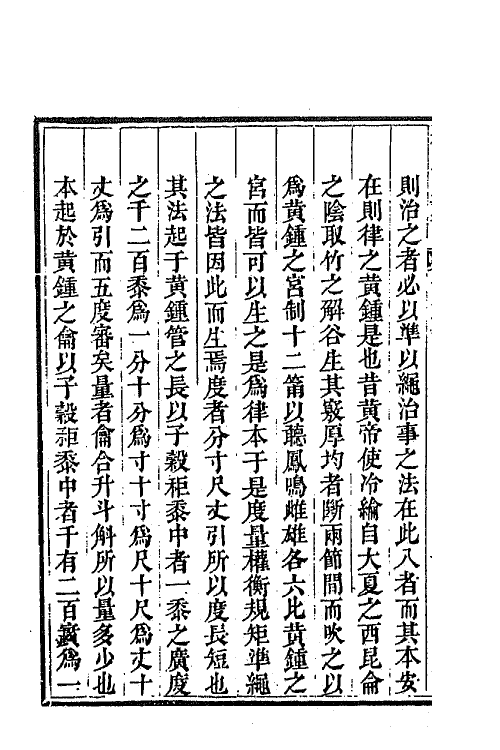 則治之者必以準以繩治事之法在此八者而其本安
在則律之黃鍾是也昔黃帝使冷綸自大夏之西昆侖
之陰取竹之解谷生其竅厚均者斷兩節間而吹之以
爲黃鍾之宮制十二筩以聽鳳鳴雌雄各六比黃鍾之
宮而皆可以生之是爲律本于是度量權衡規矩準繩
之法皆因此而生焉度者分寸尺丈引所以度長短也
其法起于黃鍾管之長以子穀秬黍中者一黍之廣度
之千二百黍爲一分十分爲寸十寸爲尺十尺爲丈十
丈爲引而五度審矣量者龠合升斗斛所以量多少也
本起於黃鍾之龠以子穀秬黍中者千有二百實爲一